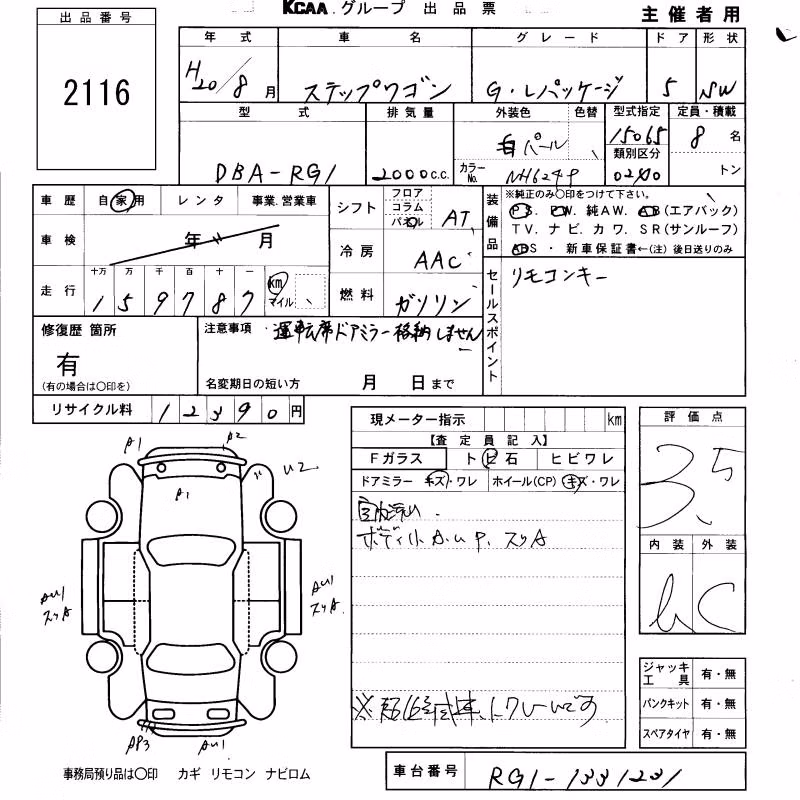 出品番号
2116
KCAA.グループ 出品票
主催者用
年式 車名 グレード ドア 形状
H20/8月 ステップワゴン G・Lパッケージ 5 SW
型式 排気量 外装色 色替 型式指定 定員・積載
DBA-RG1 2000c.c. 白パール 15065 8名
類別区分
カラーNo. NH624P トン
車歴 自家用 レンタ 事業.営業車
車検 年 月
走行 十万 万 千 百 十 一
159787 km マイル
シフト フロア コラム パネル AT
冷房 AAC
燃料 ガソリン
装備品
※純正のみ〇印をつけて下さい。
PS. PW. 純AW. AB(エアバック)
TV. ナビ. カワ. SR(サンルーフ)
ABS ・ 新車保証書←(注) 後日送りのみ
セールスポイント
リモコンキー
修復歴 箇所
有
(有の場合は〇印を)
注意事項 ・運転席ドアミラー格納しません
名変期日の短い方 月 日まで
リサイクル料 12390円
現メーター指示 km
【査定員記入】
Fガラス トビ石 ヒビワレ
ドアミラー キズ・ワレ ホイール(CP) キズ・ワレ
ボディ小A.U.P. スリA
評価点
3.5
内装 外装
C
ジャッキ工具 有・無
パンクキット 有・無
スペアタイヤ 有・無
A1 A2
U2
A1
AU1
スリA
AU1
スリA.
AP3 AU1
事務局預り品は〇印 カギ リモコン ナビロム
車台番号 RG1-1331231